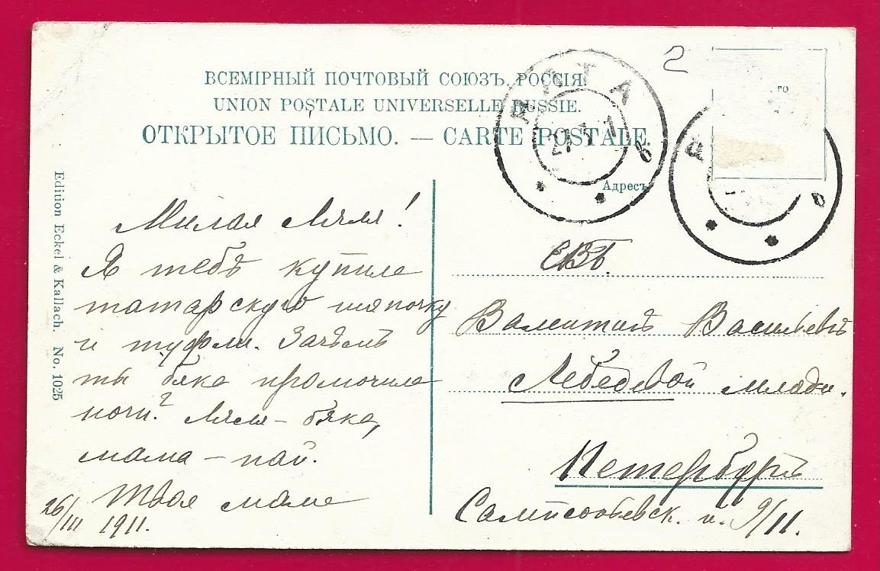 ВСЕМІРНЫЙ ПОЧТОВЫЙ СОЮЗЪ, РОССІЯ.
UNION POSTALE UNIVERSELLE RUSSIE.
ОТКРЫТОЕ ПИСЬМО. — CARTE POSTALE.
2
ЯЛТА
27 3 11
Адресъ
Edition Eckel & Kallach. No. 1025
Милая Ляля!
Я тебѣ купила
татарскую шапочку
и туфли. Зачѣмъ
ты бяка промочила
ноги? Ляля – бяка,
мама – пай.
Твоя мама
26/III 1911.
СПБ.
Васильевнѣ
Лебедевой младш.
Петербургъ
Сампсоніевск. 9/11.